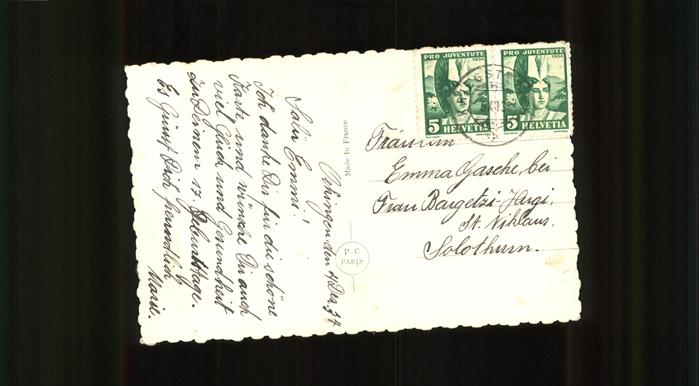 Oekingen den 4. Dez. 34
Salü Emmi!
Ich danke Dir für die schöne
Karte und wünsche Dir auch
viel Glück und Gesundheit
zu Deinem 17. Geburtstage.
Es Grüsst Dich freundlich
Marie.
Made in France
P-C
PARIS
PRO JUVENTUTE
1934
5 HELVETIA
PRO JUVENTUTE
1934
5 HELVETIA
Fräulein
Emma Gasche, bei
Frau Bargetzi-
St. Niklaus.
Solothurn.